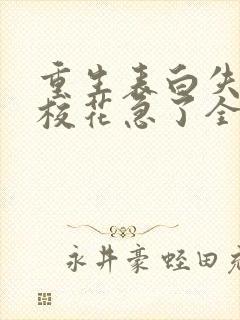 重生表白失
校花急了全
永井豪蛭田充